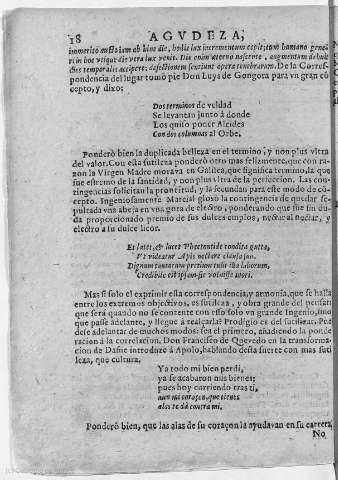 18 AGVDEZA,
immerito
ri in hoc vtique die vera lux venit. Die enim aterno nascente, augmentum debuit
dies temporalis accipere; defectionem sentiunt opera tenebrarum. De la Corres-
pondencia del lugar tomò pie Don Luys de Gongora para vn gran cõ
cepto, y dixo:
Dos terminos de beldad
Se levantan junto à donde
Los quiso poner Alcides
Con dos columnas al Orbe.
Ponderò bien la duplicada belleza en el termino; y non plus vltra
del valor. Con esta sutileza ponderò otro mas felizmente, que con ra-
zon la Virgen Madre morava en Galilea, que significa termino, la que
fue estremo de la santidad, y non plus vltra de la perfeccion. Las con-
tingencias solicitan la prontitud, y la fecundan para este modo de cõ-
cepto. Ingeniosamente Marcial glosò la contingencia de quedar se-
pultada vna abeja en vna gota de electro; ponderando que fue sin du
da proporcionado premio de sus dulces emplos, nectar al nectar, y
electro a su dulce licor.
Et latet, & lucet Phaetontide condita gutta,
Vt videatur Apis nectare clausa suo.
Dignum tantorum pretium tulit illa laborum,
Credibile est ipsam sic voluisse mori.
Mas si solo el exprimir esta correspondencia, y armonia, que se halla
entre los extremos objectivos, es sutileza, y obra grande del pensar;
que serà quando no se contente con esso solo vn grande Ingenio, sino
que passe adelante, y llegue a realçarla? Prodigio es del sutilizar. Pue
dese adelantar de muchos modos: sea el primero, añadiendo la ponde
racion à la correlacion. Don Francisco de Quevedo en la transforma-
cion de Dafne introduce à Apolo, hablando desta suerte con mas suti
leza, que cultura.
Ya todo mi bien perdi,
ya se acabaron mis bienes;
pues hoy corriendo tras ti,
aun mi coraçon, que tienes
alas te dà contra mi.
Ponderò bien, que las alas de su coraçon la ayudavan en su carrera,
No